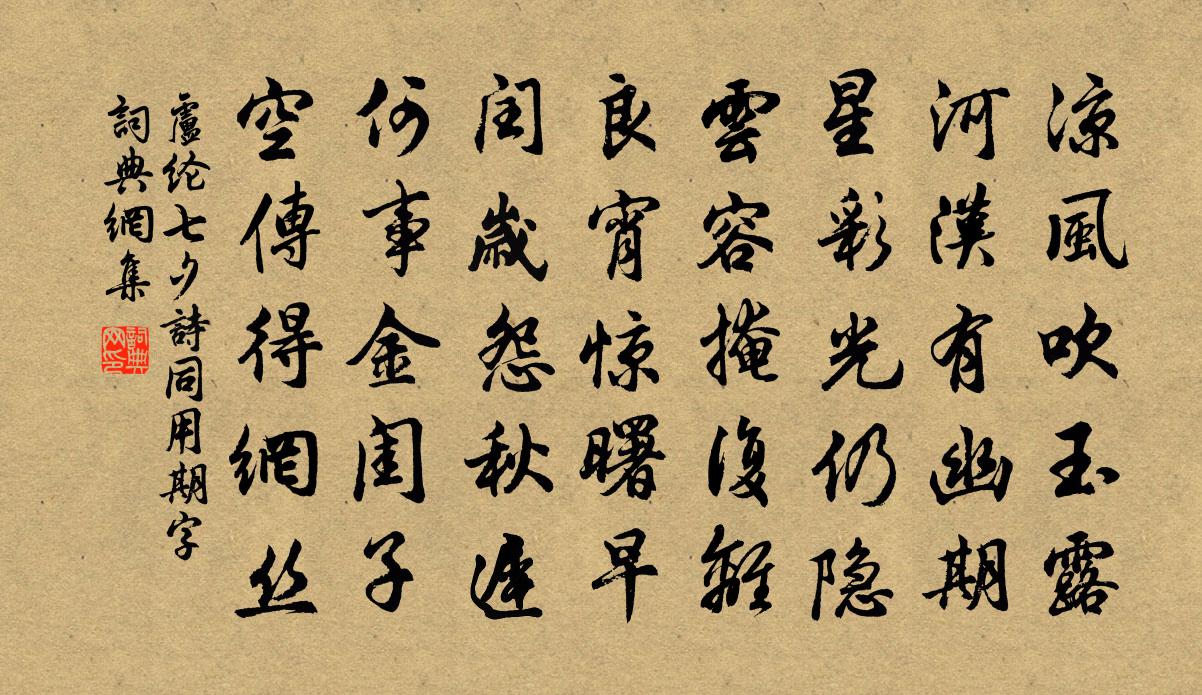 涼風吹玉露
河漢有幽期
星彩光仍隐
雲容掩復離
良宵惊曙早
閏歲怨秋遲
何事金閨子
空傳得網丝
盧纶七夕詩同用期字
詞典網集
詞典网印